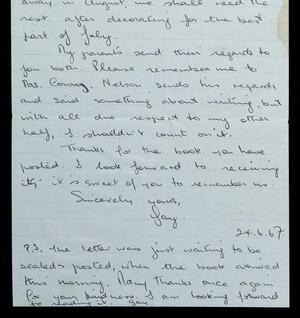 away in August, we shall need the
rest after decorating for the best
part of July.
My parents send their regards to
you both. Please remember me to
Mrs. Nelson sends his regards
and said something about writing, but
with all due respect to my other
half, I shouldn't count on it.
Thanks for the book you have
posted. I look forward to receiving
it, it's sweet of you to remember us.
Sincerely yours,
Gay.
24.6.67.
P.S. the letter was just waiting to be
sealed & posted, when the book arrived
this morning. Many thanks once again
for your kindness. I am looking forward
to reading it. Gay